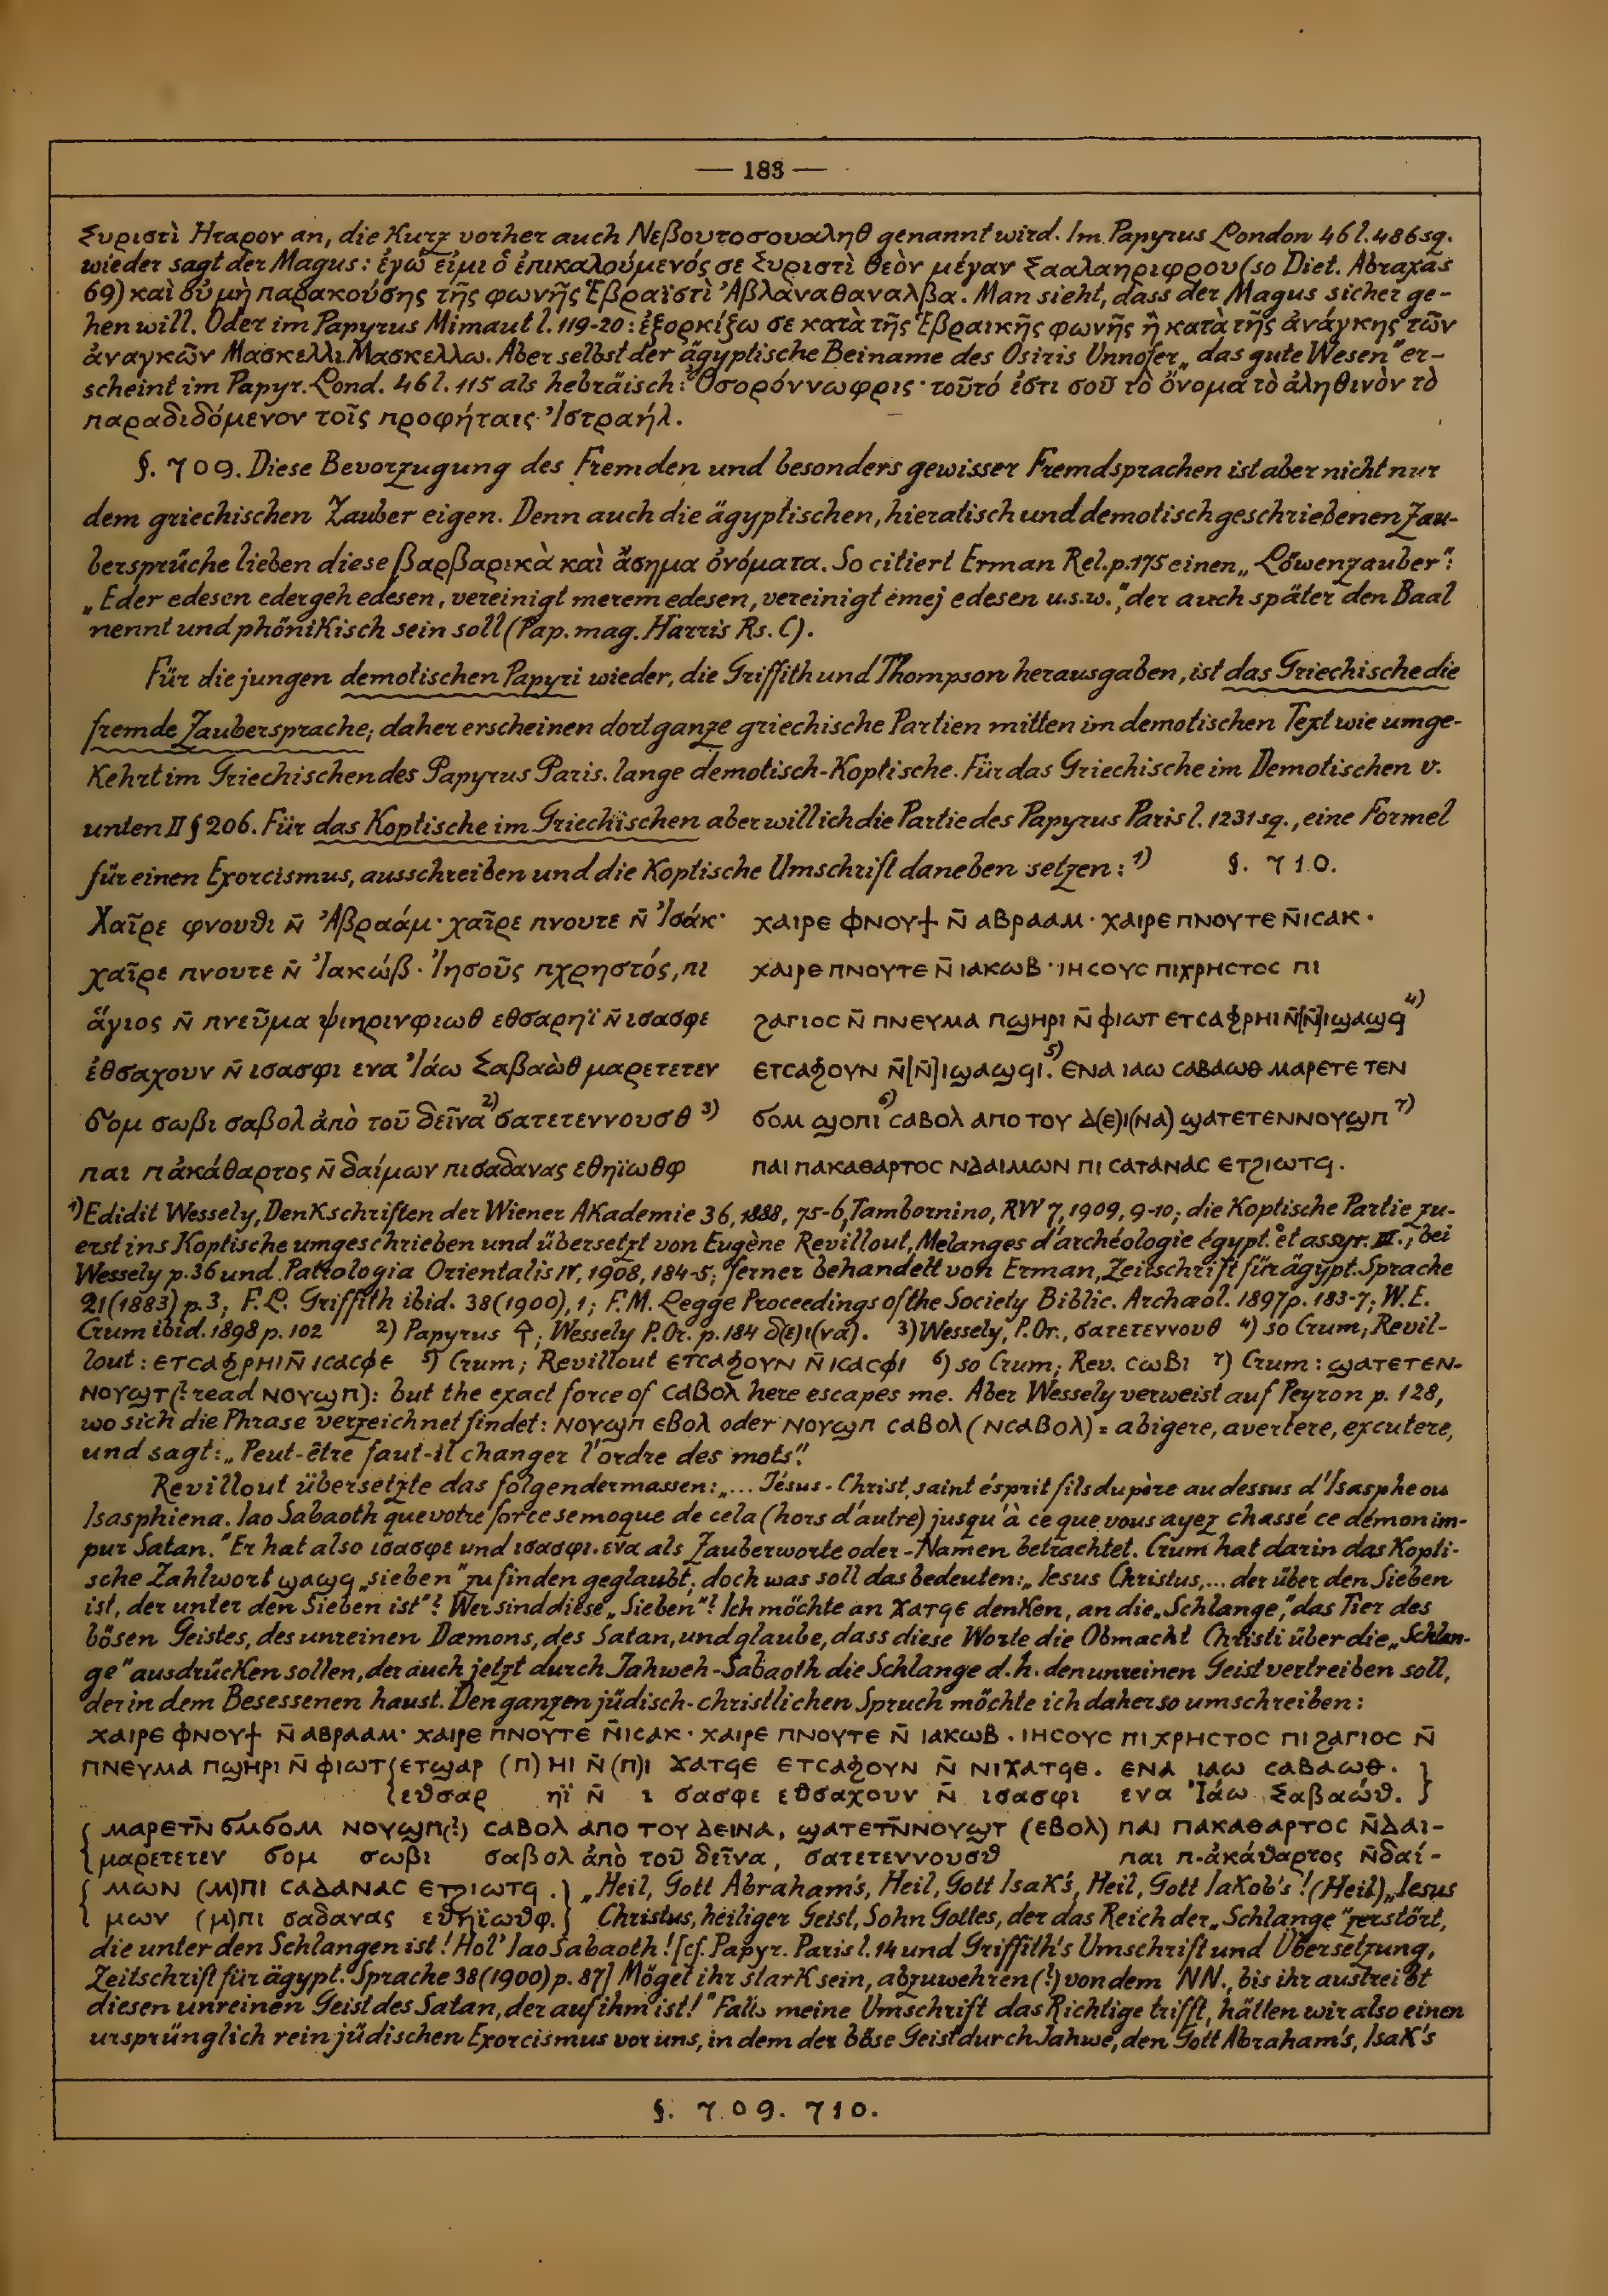 — 183 —
Συριστὶ Ηταρον an, die Kurz vorher auch Νεβουτοσουαληθ genannt wird. Im Papyrus London 46 l. 486 sq.
wieder sagt der Magus: ἐγώ εἰμι ὁ ἐπικαλούμενός σε Συριστὶ θεὸν μέγαν Ζααλαηριφρου (so Diet. Abraxas
69) καὶ σὺ μὴ παρακούσῃς τῆς φωνῆς Ἑβραϊστὶ Ἀβλαναθαναλβα. Man sieht, dass der Magus sicher ge-
hen will. Oder im Papyrus Mimaut l. 119-20: ἐξορκίζω σε κατὰ τῆς Ἑβραικῆς φωνῆς ἢ κατὰ τῆς ἀνάγκης τῶν
ἀναγκῶν Μασκελλι Μασκελλω. Aber selbst der ägyptische Beiname des Osiris Unnofer „das gute Wesen" er-
scheint im Papyr. Lond. 46 l. 115 als hebräisch: Ὀσορόννωφρις· τοῦτό ἐστι σοῦ τὸ ὄνομα τὸ ἀληθινὸν τὸ
παραδιδόμενον τοῖς προφήταις Ἰστραήλ.
§. 709. Diese Bevorzugung des Fremden und besonders gewisser Fremdsprachen ist aber nicht nur
dem griechischen Zauber eigen. Denn auch die ägyptischen, hieratisch und demotisch geschriebenen Zau-
bersprüche lieben diese βαρβαρικὰ καὶ ἄσημα ὀνόματα. So citiert Erman Rel. p. 175 einen „Löwenzauber":
„Eder edesen edergeh edesen, vereinigt merem edesen, vereinigt emej edesen u.s.w.", der auch später den Baal
nennt und phönikisch sein soll (Pap. mag. Harris Rs. C).
Für die jungen demotischen Papyri wieder, die Griffith und Thompson herausgaben, ist das Griechische die
fremde Zaubersprache; daher erscheinen dort ganze griechische Partien mitten im demotischen Text wie umge-
Kehrt im Griechischen des Papyrus Paris. lange demotisch-Koptische. Für das Griechische im Demotischen v.
unten II § 206. Für das Koptische im Griechischen aber will ich die Partie des Papyrus Paris l. 1231 sq., eine Formel
für einen Exorcismus, ausschreiben und die Koptische Umschrift daneben setzen: 1) §. 710.
Χαῖρε φνουθι ν̄ Ἀβραάμ· χαῖρε πνουτε ν̄ Ἰσάκ· ⲭⲁⲓⲣⲉ ⲫⲛⲟⲩϯ ⲛ̄ ⲁⲃⲣⲁⲁⲙ· ⲭⲁⲓⲣⲉ ⲡⲛⲟⲩⲧⲉ ⲛ̄ⲓⲥⲁⲕ·
χαῖρε πνουτε ν̄ Ἰακώβ· Ἰησοῦς πχρηστός, πι ⲭⲁⲓⲣⲉ ⲡⲛⲟⲩⲧⲉ ⲛ̄ ⲓⲁⲕⲱⲃ· ⲓⲏⲥⲟⲩⲥ ⲡⲓⲭⲣⲏⲥⲧⲟⲥ ⲡⲓ
ἅγιος ν̄ πνεῦμα ψιηρινφιωθ εθσαρηϊ ν̄ ισασφε ϩⲁⲅⲓⲟⲥ ⲛ̄ ⲡⲛⲉⲩⲙⲁ ⲡϣⲏⲣⲓ ⲛ̄ ⲫⲓⲱⲧ ⲉⲧⲥⲁϩⲣⲏⲓ ⲛ̄[ⲛ̄]ⲓϣⲁϣϥ 4)
ἐθσαχουν ν̄ ισασφι ενα Ἰάω Σαβαὼθ μαρετετεν ⲉⲧⲥⲁϧⲟⲩⲛ ⲛ̄[ⲛ̄]ⲓϣⲁϣϥⲓ. 5) ⲉⲛⲁ ⲓⲁⲱ ⲥⲁⲃⲁⲱⲑ ⲙⲁⲣⲉⲧⲉ ⲧⲉⲛ
ϭομ σωβι σαβολ ἀπὸ τοῦ δεῖνα 2) σατετεννουσθ 3) ϭⲟⲙ ϣⲟⲡⲓ 6) ⲥⲁⲃⲟⲗ ⲁⲡⲟ ⲧⲟⲩ ⲇ(ⲉ)ⲓ(ⲛⲁ) ϣⲁⲧⲉⲧⲉⲛⲛⲟⲩϣⲡ 7)
παι πἀκάθαρτος ν̄ δαίμων πισαδανας εθηϊωθφ ⲡⲁⲓ ⲡⲁⲕⲁⲑⲁⲣⲧⲟⲥ ⲛⲇⲁⲓⲙⲱⲛ ⲡⲓ ⲥⲁⲧⲁⲛⲁⲥ ⲉⲧϩⲓⲱⲧϥ.
1) Edidit Wessely, Denkschriften der Wiener Akademie 36, 1888, 75-6, Tambornino, RVV 7, 1909, 9-10; die Koptische Partie zu-
erst ins Koptische umgeschrieben und übersetzt von Eugène Revillout, Melanges d'archéologie égypt. et assyr. III., bei
Wessely p. 36 und Patrologia Orientalis IV, 1908, 184-5; ferner behandelt von Erman, Zeitschrift für ägypt. Sprache
21 (1883) p. 3; F. L. Griffith ibid. 38 (1900), 1; F. M. Legge Proceedings of the Society Biblic. Archæol. 1897 p. 183-7; W. E.
Crum ibid. 1898 p. 102 2) Papyrus; Wessely P. Or. p. 184 δ(ε)ι(να). 3) Wessely, P. Or., σατετεννουθ 4) so Crum; Revil-
lout: ⲉⲧⲥⲁϩⲣⲏⲓⲛ̄ ⲓⲥⲁⲥⲫⲉ 5) Crum; Revillout ⲉⲧⲥⲁϧⲟⲩⲛ ⲛ̄ ⲓⲥⲁⲥⲫⲓ 6) so Crum; Rev. ⲥⲱⲃⲓ 7) Crum: ϣⲁⲧⲉⲧⲉⲛ-
ⲛⲟⲩϣⲧ (? read ⲛⲟⲩϣⲡ): but the exact force of ⲥⲁⲃⲟⲗ here escapes me. Aber Wessely verweist auf Peyron p. 128,
wo sich die Phrase verzeichnet findet: ⲛⲟⲩϣⲡ ⲉⲃⲟⲗ oder ⲛⲟⲩϣⲡ ⲥⲁⲃⲟⲗ (ⲛⲥⲁⲃⲟⲗ) = abigere, avertere, excutere,
und sagt: „Peut-être faut-il changer l'ordre des mots".
Revillout übersetzte das folgendermassen: „... Jésus-Christ, saint ésprit fils du père au dessus d'Isasphe ou
Isasphiena. Iao Sabaoth que votre force se moque de cela (hors d'autre) jusqu'à ce que vous ayez chassé ce démon im-
pur Satan." Er hat also ισασφε und ισασφι. ενα als Zauberworte oder -Namen betrachtet. Crum hat darin das Kopti-
sche Zahlwort ϣⲁϣϥ „sieben" zu finden geglaubt; doch was soll das bedeuten: „Iesus Christus, ... der über den Sieben
ist, der unter den Sieben ist"? Wer sind diese „Sieben"? Ich möchte an ϫⲁⲧϥⲉ denken, an die „Schlange", das Tier des
bösen Geistes, des unreinen Dæmons, des Satan, und glaube, dass diese Worte die Obmacht Christi über die „Schlan-
ge" ausdrücken sollen, der auch jetzt durch Jahweh-Sabaoth die Schlange d. h. den unreinen Geist vertreiben soll,
der in dem Besessenen haust. Den ganzen jüdisch-christlichen Spruch möchte ich daher so umschreiben:
ⲭⲁⲓⲣⲉ ⲫⲛⲟⲩϯ ⲛ̄ ⲁⲃⲣⲁⲁⲙ· ⲭⲁⲓⲣⲉ ⲡⲛⲟⲩⲧⲉ ⲛ̄ⲓⲥⲁⲕ· ⲭⲁⲓⲣⲉ ⲡⲛⲟⲩⲧⲉ ⲛ̄ ⲓⲁⲕⲱⲃ· ⲓⲏⲥⲟⲩⲥ ⲡⲓ ⲭⲣⲏⲥⲧⲟⲥ ⲡⲓ ϩⲁⲅⲓⲟⲥ ⲛ̄
ⲡⲛⲉⲩⲙⲁ ⲡϣⲏⲣⲓ ⲛ̄ ⲫⲓⲱⲧ {ⲉⲧϣⲁⲣ (ⲡ)ⲏⲓ ⲛ̄ (ⲡ)ⲓ ϫⲁⲧϥⲉ ⲉⲧⲥⲁϧⲟⲩⲛ ⲛ̄ ⲛⲓϫⲁⲧϥⲉ. ⲉⲛⲁ ⲓⲁⲱ ⲥⲁⲃⲁⲱⲑ.}
{εθσαρ ηϊ ν̄ ι σασφε εθσαχουν ν̄ ισασφι ενα Ἰάω Σαβαώθ.}
{ⲙⲁⲣⲉⲧⲛ̄ ϭⲙϭⲟⲙ ⲛⲟⲩϣⲡ(?) ⲥⲁⲃⲟⲗ ⲁⲡⲟ ⲧⲟⲩ ⲇⲉⲓⲛⲁ, ϣⲁⲧⲉⲧⲛ̄ⲛⲟⲩϣⲧ (ⲉⲃⲟⲗ) ⲡⲁⲓ ⲡⲁⲕⲁⲑⲁⲣⲧⲟⲥ ⲛ̄ⲇⲁⲓ-
{μαρετετεν ϭομ σωβι σαβολ ἀπὸ τοῦ δεῖνα, σατετεννουσθ παι π-ἀκάθαρτος ν̄δαί-
{ⲙⲱⲛ (ⲙ)ⲡⲓ ⲥⲁⲇⲁⲛⲁⲥ ⲉⲧϩⲓⲱⲧϥ.} „Heil, Gott Abraham's, Heil, Gott Isak's, Heil, Gott Iakob's! (Heil) „Iesus
{μων (μ)πι σαδανας εθηϊωθφ.} Christus, heiliger Geist, Sohn Gottes, der das Reich der „Schlange" zerstört,
die unter den Schlangen ist! Hol' Iao Sabaoth! [cf. Papyr. Paris l. 14 und Griffith's Umschrift und Übersetzung,
Zeitschrift für ägypt. Sprache 38 (1900) p. 87] Möget ihr stark sein, abzuwehren (?) von dem NN., bis ihr austreibt
diesen unreinen Geist des Satan, der auf ihm ist!" Falls meine Umschrift das Richtige trifft, hätten wir also einen
ursprünglich rein jüdischen Exorcismus vor uns, in dem der böse Geist durch Jahwe, den Gott Abraham's, Isak's
§. 709. 710.